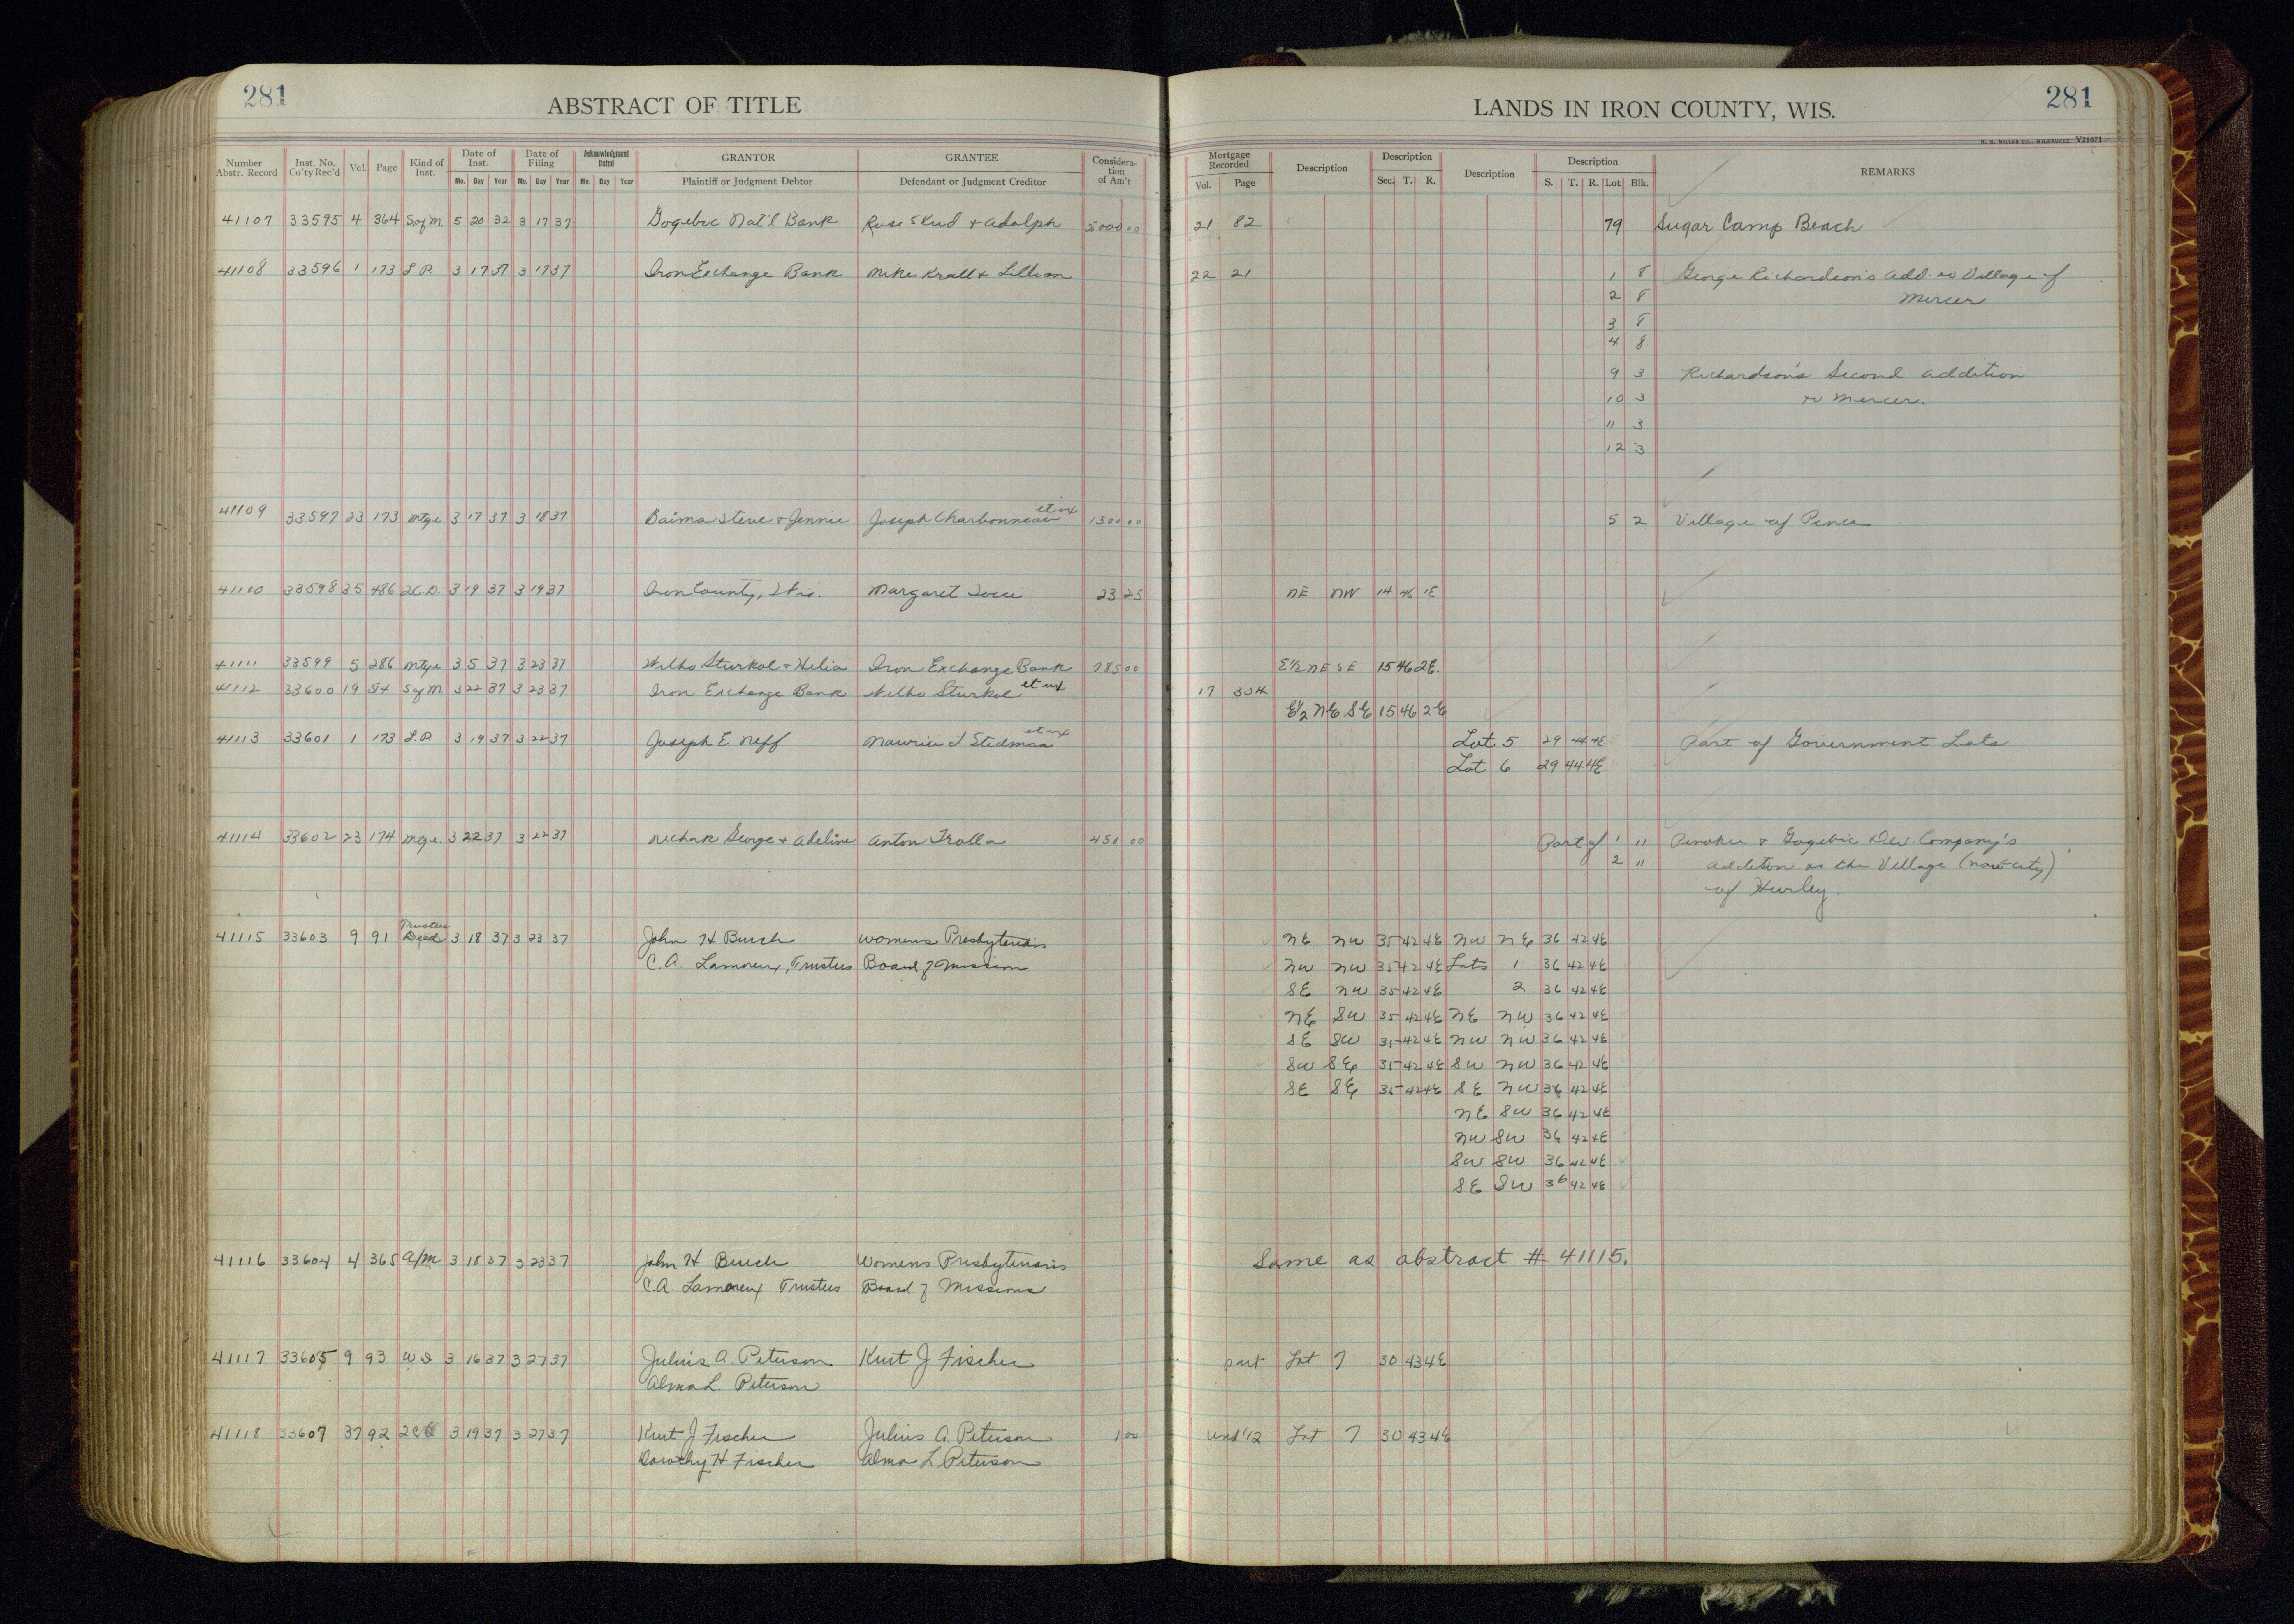 281 ABSTRACT OF TITLE
LANDS IN IRON COUNTY, WIS. 281
H. G. MILLER CO., MILWAUKEE V21671
Number Abstr. Record Inst. No. Co'ty Rec'd Vol. Page Kind of Inst. Date of Inst. Mo. Day Year Date of Filing Mo. Day Year Acknowledgment Dated Mo. Day Year GRANTOR Plaintiff or Judgment Debtor GRANTEE Defendant or Judgment Creditor Consideration of Am't
Mortgage Recorded Vol. Page Description Description Sec. T. R. Description Description S. T. R. Lot Blk. REMARKS
41107 33595 4 364 S of M 5 20 32 3 17 37 Gogebic Nat'l Bank Rose Skud + Adolph 5000 00 21 82 79 Sugar Camp Beach
41108 33596 1 173 L.P. 3 17 37 3 17 37 Iron Exchange Bank Mike Krall + Lillian 22 21 1 8 George Richardson's Add. to Village of
2 8 Mercer
3 8
4 8
9 3 Richardson's Second Addition
10 3 to Mercer.
11 3
12 3
41109 33597 23 173 Mtge 3 17 37 3 18 37 Baima Steve + Jennie Joseph Charbonneau et ux 1500 00 5 2 Village of Pence
41110 33598 35 486 2C.D. 3 19 37 3 19 37 Iron County, Wis. Margaret 23 25 NE NW 14 46 1E
41111 33599 5 286 Mtge 3 5 37 3 23 37 Wilho Sturkol + Helia Iron Exchange Bank 785 00 E½ NE SE 15 46 2E.
41112 33600 19 54 S of M 3 22 37 3 23 37 Iron Exchange Bank Wilho Sturkol et ux 17 304
E½ NE SE 15 46 2E
41113 33601 1 173 L.P. 3 19 37 3 22 37 Joseph E. Neff Maurice I Stedman et ux Lot 5 29 44 4E Part of Government Lots
Lot 6 29 44 4E
41114 33602 23 174 Mtge. 3 22 37 3 22 37 George + Adeline Anton Trolla 450 00 Part of 1 11 Penokee + Gogebic Dev. Company's
2 11 Addition to the Village (now city)
of Hurley.
41115 33603 9 91 Trustees Deed 3 18 37 3 23 37 John H Burch Womens Presbyterian NE NW 35 42 4E NW NE 36 42 4E
C.A. Lamoreux, Trustees Board of Mission NW NW 35 42 4E Lots 1 36 42 4E
SE NW 35 42 4E 2 36 42 4E
NE SW 35 42 4E NE NW 36 42 4E
SE SW 35 42 4E NW NW 36 42 4E
SW SE 35 42 4E SW NW 36 42 4E
SE SE 35 42 4E SE NW 36 42 4E
NE SW 36 42 4E
NW SW 36 42 4E
SW SW 36 42 4E
SE SW 36 42 4E
41116 33604 4 365 A/M 3 18 37 3 23 37 John H Burch Womens Presbyterian Same as abstract # 41115.
C.A. Lamoreux Trustees Board of Missions
41117 33605 9 93 WD 3 16 37 3 27 37 Julius A. Peterson Kurt J Fischer part Lot 7 30 43 4E
Alma L. Peterson
41118 33607 37 92 3 19 37 3 27 37 Kurt J Fischer Julius A. Peterson 1 00 Und ½ Lot 7 30 43 4E
Dorothy H Fischer Alma L Peterson